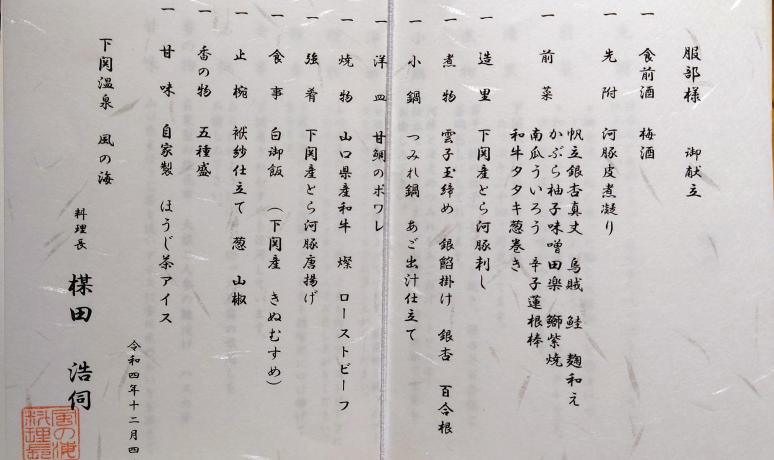 服部様 御献立
一 食前酒 梅酒
一 先附 河豚皮煮凝り
一 前菜 帆立銀杏真丈 烏賊 鮭 麹和え
かぶら柚子味噌田楽 鰤柴焼
南瓜ういろう 辛子蓮根棒
和牛タタキ葱巻き
一 造里 下関産とら河豚刺し
一 煮物 雲子玉締め 銀餡掛け 銀杏 百合根
一 小鍋 つみれ鍋 あご出汁仕立て
一 洋皿 甘鯛のポワレ
一 焼物 山口県産和牛 燦 ローストビーフ
一 強肴 下関産とら河豚唐揚げ
一 食事 白御飯 (下関産 きぬむすめ)
一 止椀 袱紗仕立て 葱 山椒
一 香の物 五種盛
一 甘味 自家製 ほうじ茶アイス
令和四年十二月四
下関温泉 風の海
料理長 楳田 浩伺
風の海
料理長